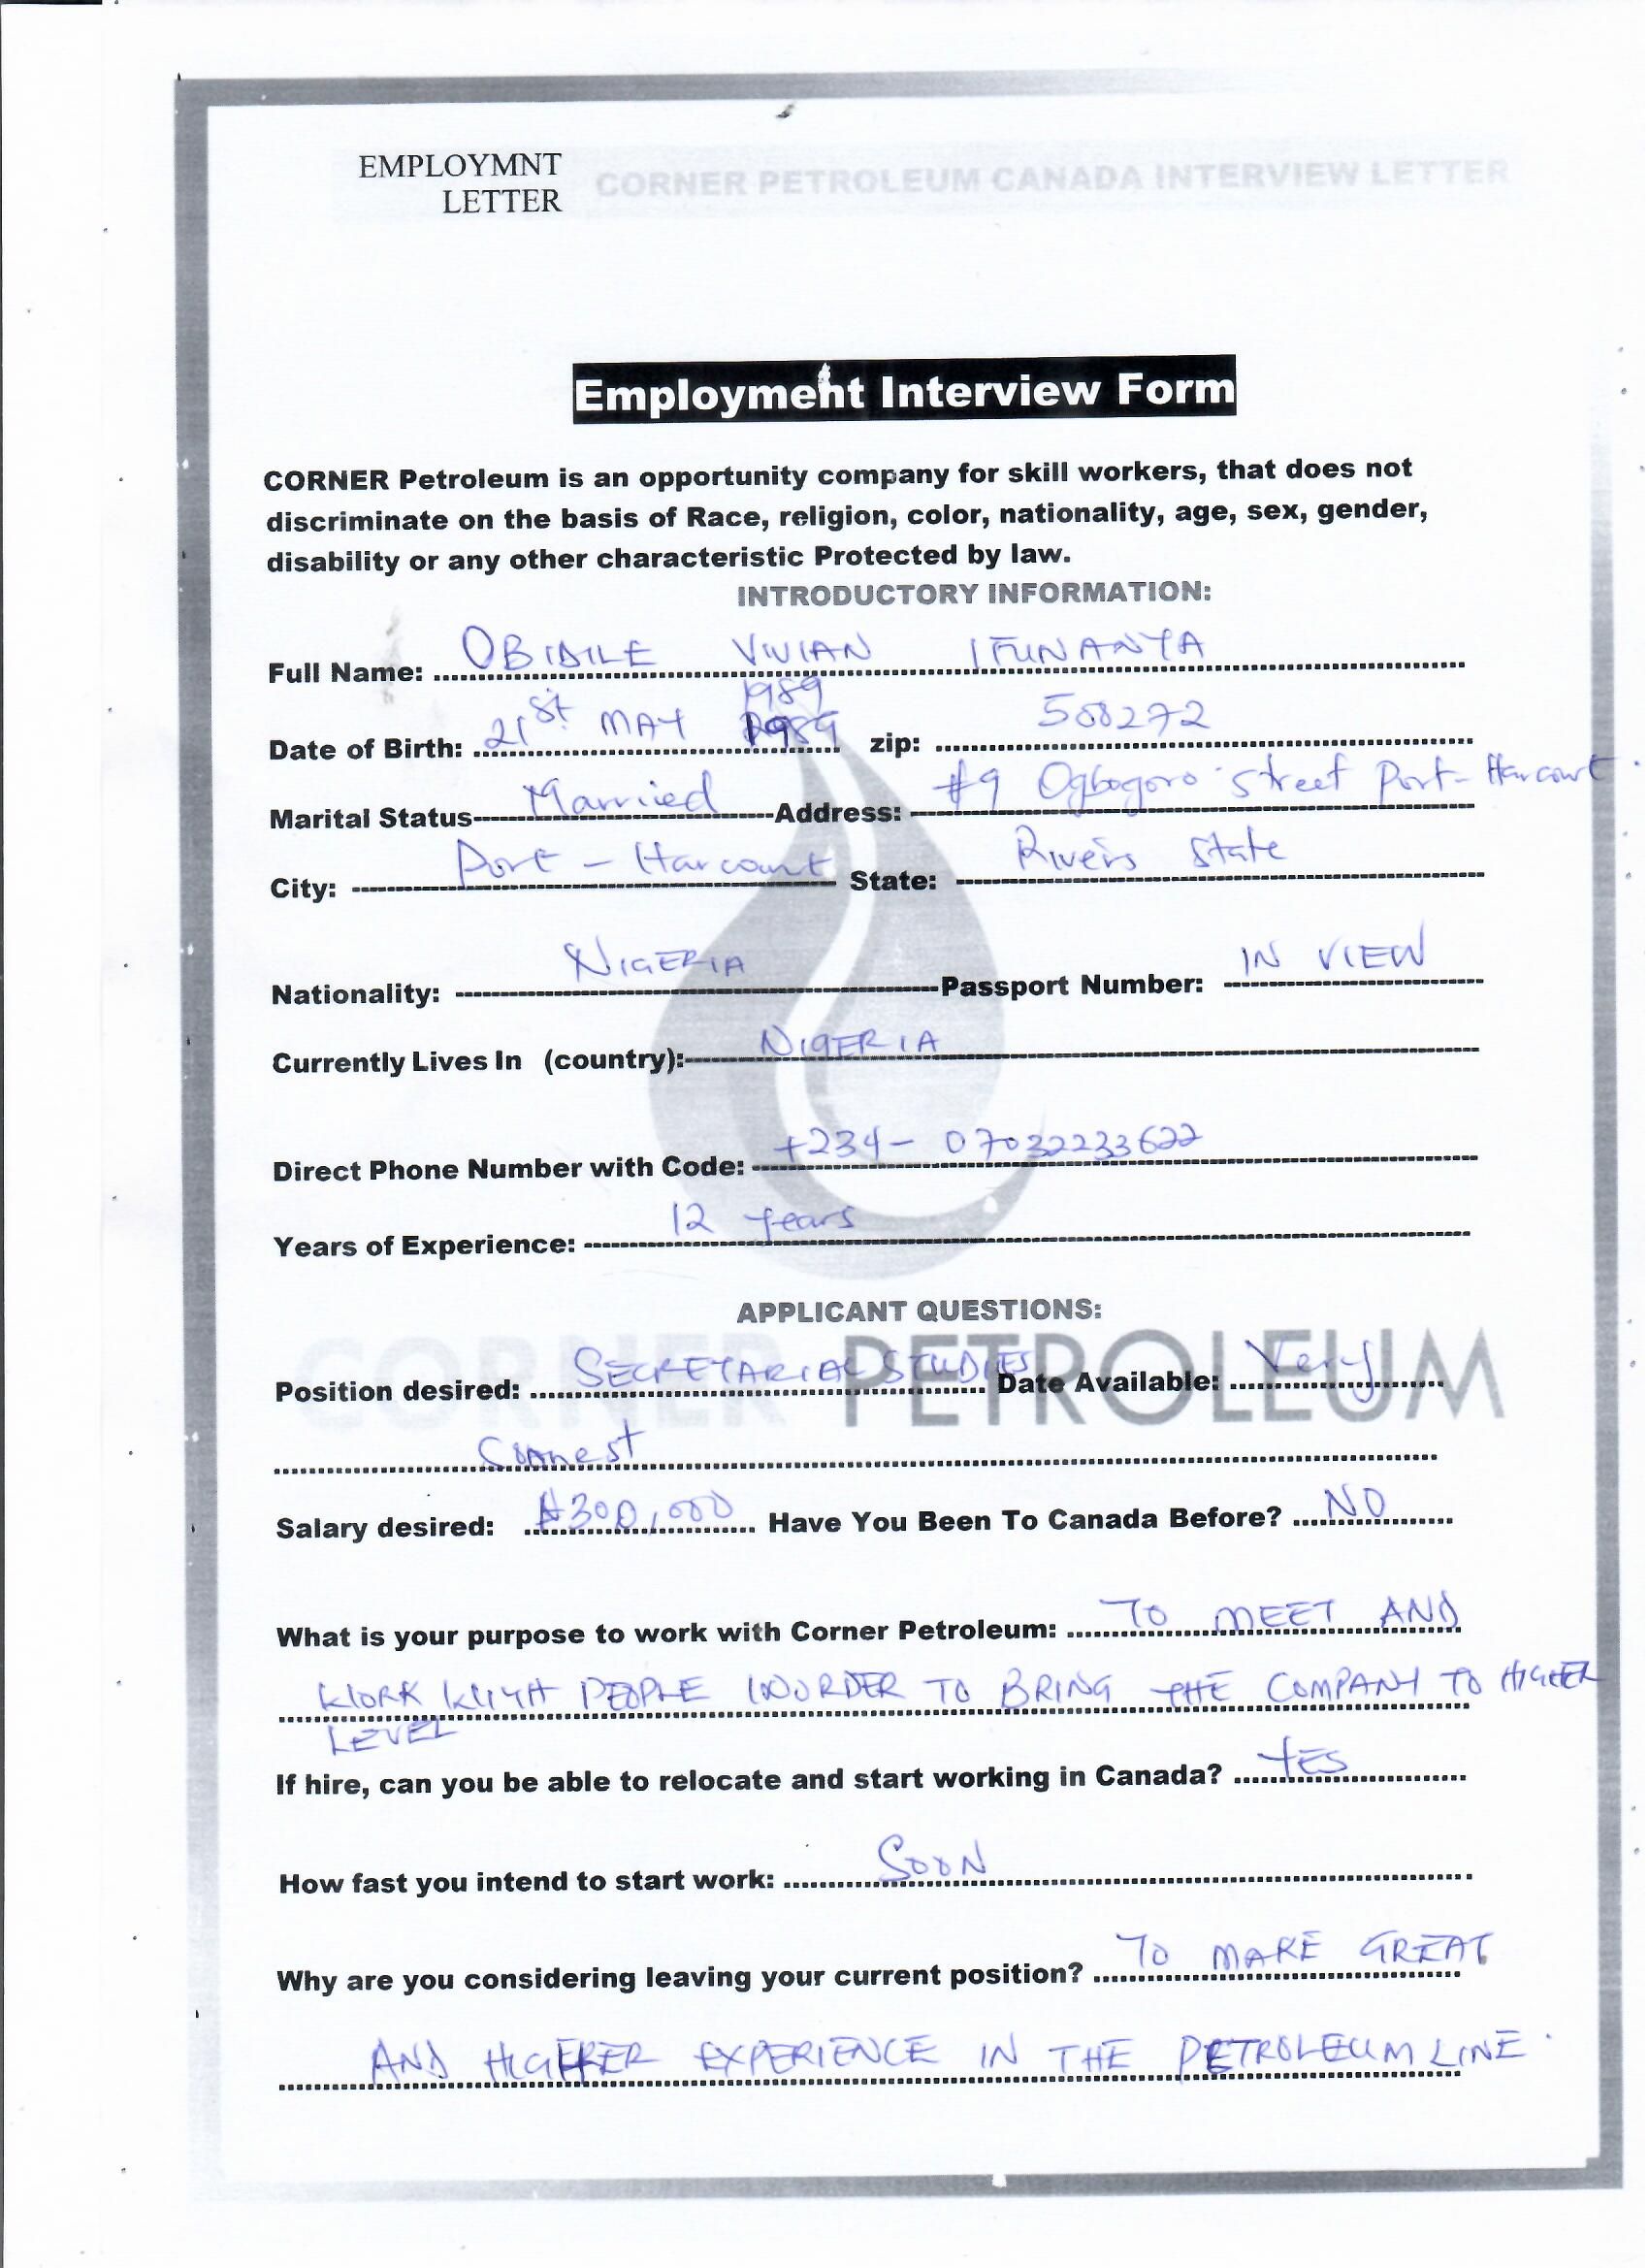 EMPLOYMNT
LETTER
CORNER PETROLEUM CANADA INTERVIEW LETTER
Employment Interview Form
CORNER Petroleum is an opportunity company for skill workers, that does not
discriminate on the basis of Race, religion, color, nationality, age, sex, gender,
disability or any other characteristic Protected by law.
INTRODUCTORY INFORMATION:
Full Name: OBIDILE VIVIAN IFUNANYA
1989
Date of Birth: 21st MAY 1989 zip: 508272
Marital Status Married Address: #9 Ogbogoro Street Port-Harcourt.
City: Port - Harcourt State: Rivers State
Nationality: NIGERIA Passport Number: IN VIEW
Currently Lives In (country): NIGERIA
Direct Phone Number with Code: +234- 07032233622
Years of Experience: 12 years
APPLICANT QUESTIONS:
CORNER PETROLEUM
Position desired: SECRETARIAL STUDIES Date Available: Very
Salary desired: ₦300,000 Have You Been To Canada Before? NO
What is your purpose to work with Corner Petroleum: TO MEET AND
WORK WITH PEOPLE INORDER TO BRING THE COMPANY TO HIGHER
LEVEL
If hire, can you be able to relocate and start working in Canada? YES
How fast you intend to start work: SOON
Why are you considering leaving your current position? TO MAKE GREAT
AND HIGHER EXPERIENCE IN THE PETROLEUM LINE.